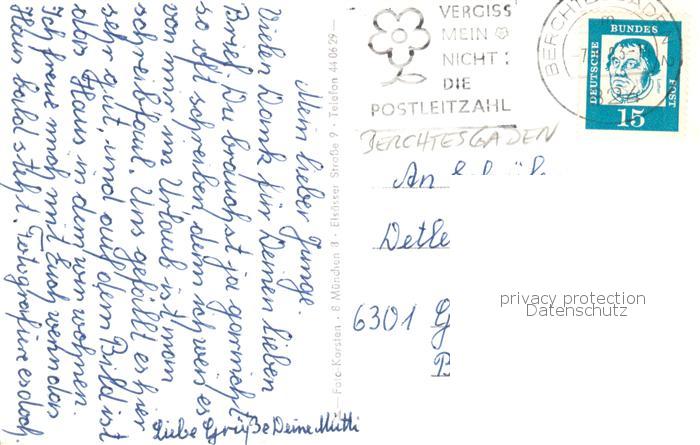 Mein lieber Junge.
Vielen Dank für Deinen lieben
Brief. Du brauchst ja garnicht
so oft schreiben, denn ich weiß es
von mir im Urlaub ist man
schreibfaul. Uns gefällt es hier
sehr gut, und auf dem Bild ist
das Haus in dem wir wohnen.
Ich freue mich mit Euch wenn das
Haus bald steht. Fotografiere es doch.
Liebe Grüße Deine Mutti
Foto-Karsten · 8 München 3 · Elsässer Straße 9 · Telefon 44 06 29
VERGISS
MEIN
NICHT:
DIE
POSTLEITZAHL
BERCHTESGADEN
DEUTSCHE BUNDESPOST
15
BERCHTESGADEN
An
Detle
6301 G
privacy protection
Datenschutz